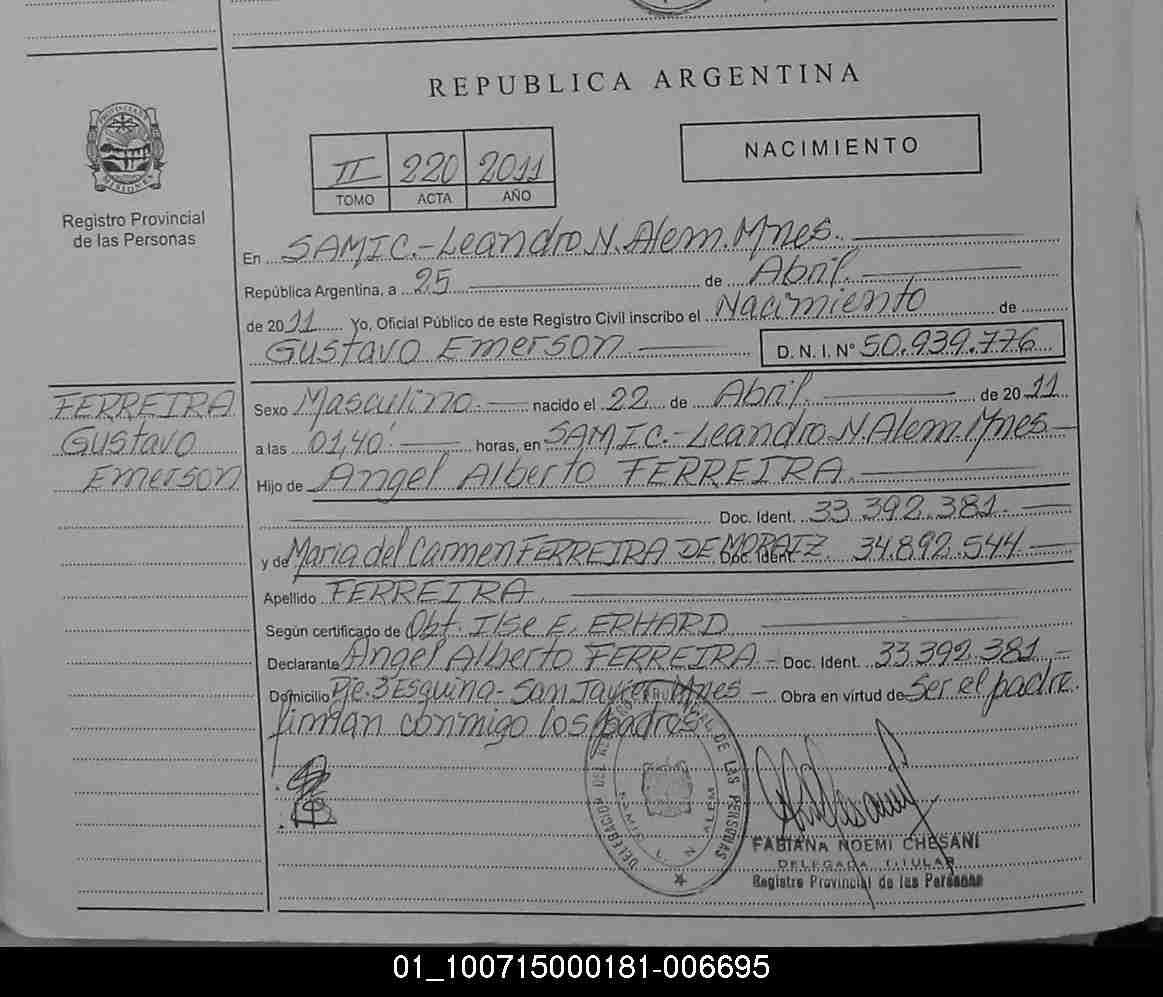 REPUBLICA ARGENTINA
PROVINCIA DE MISIONES
Registro Provincial
de las Personas
II 220 2011
TOMO ACTA AÑO
NACIMIENTO
En SAMIC.-Leandro.N.Alem.Mnes.
República Argentina, a 25 de Abril.
de 2011 Yo, Oficial Público de este Registro Civil inscribo el Nacimiento de
Gustavo Emerson D. N. I. Nº 50.939.776
FERREIRA
Gustavo
Emerson
Sexo Masculino. nacido el 22 de Abril. de 2011
a las 01,40' horas, en SAMIC.-Leandro.N.Alem.Mnes
Hijo de Angel Alberto FERREIRA.
Doc. Ident. 33.392.381.
y de Maria del Carmen FERREIRA DE MORAEZ Doc. Ident. 34.892.544
Apellido FERREIRA.
Según certificado de Obt. Ilse E. ERHARD
Declarante Angel Alberto FERREIRA - Doc. Ident. 33.392.381,-
Domicilio Pje. 3 Esquina- San Javier Mnes - Obra en virtud de Ser el padre.
firman conmigo los padres
DELEGACION DEL REGISTRO PROVINCIAL DE LAS PERSONAS
L. N. ALEM
FABIANA NOEMI CHESANI
DELEGADA TITULAR
Registro Provincial de las Personas
01_100715000181-006695